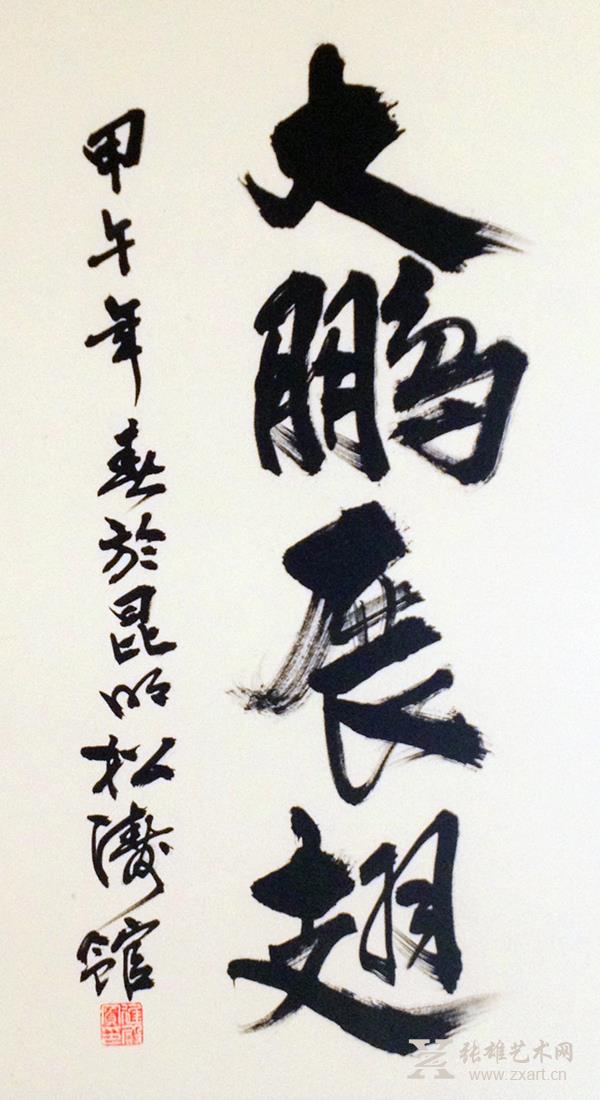 大鹏展翅
甲午年春於昆明松濤館
张雄艺术网
www.zxart.cn